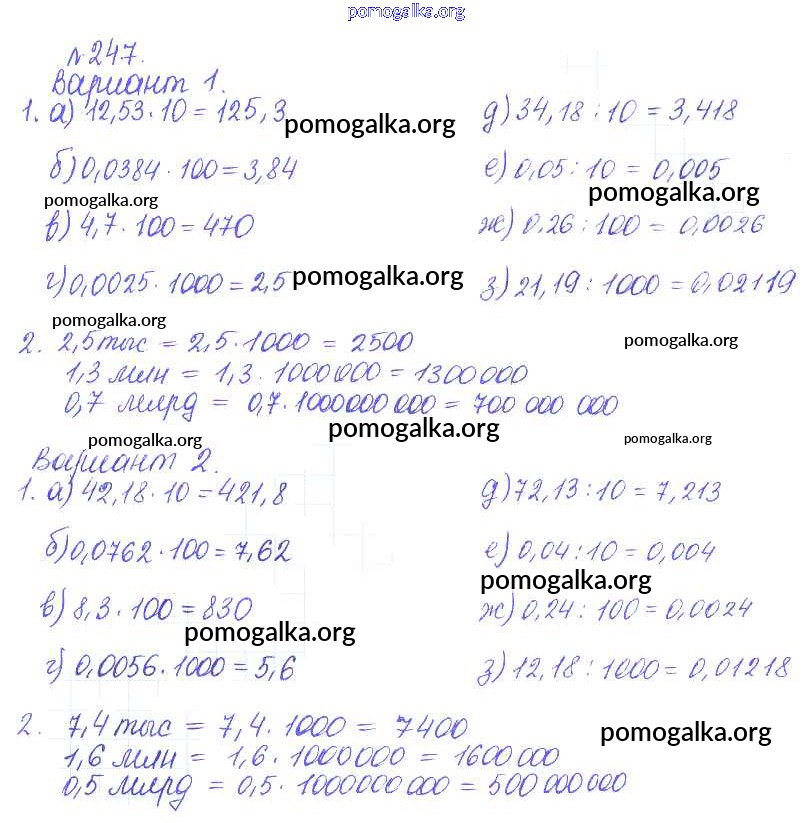 pomogalka.org
№247.
Вариант 1.
1. а) 12,53·10=125,3 pomogalka.org д) 34,18:10=3,418
б) 0,0384·100=3,84 е) 0,05:10=0,005
pomogalka.org pomogalka.org
в) 4,7·100=470 ж) 0,26:100=0,0026
г) 0,0025·1000=2,5 pomogalka.org з) 21,19:1000=0,02119
pomogalka.org
2. 2,5 тыс = 2,5·1000 = 2500 pomogalka.org
1,3 млн = 1,3·1000000 = 1300000
0,7 млрд = 0,7·1000000000 = 700 000 000
pomogalka.org pomogalka.org pomogalka.org
Вариант 2.
1. а) 42,18·10=421,8 д) 72,13:10=7,213
б) 0,0762·100=7,62 е) 0,04:10=0,004
pomogalka.org
в) 8,3·100=830 ж) 0,24:100=0,0024
pomogalka.org
г) 0,0056·1000=5,6 з) 12,18:1000=0,01218
2. 7,4 тыс = 7,4·1000 = 7400 pomogalka.org
1,6 млн = 1,6·1000000 = 1600 000
0,5 млрд = 0,5·1000000000 = 500 000 000